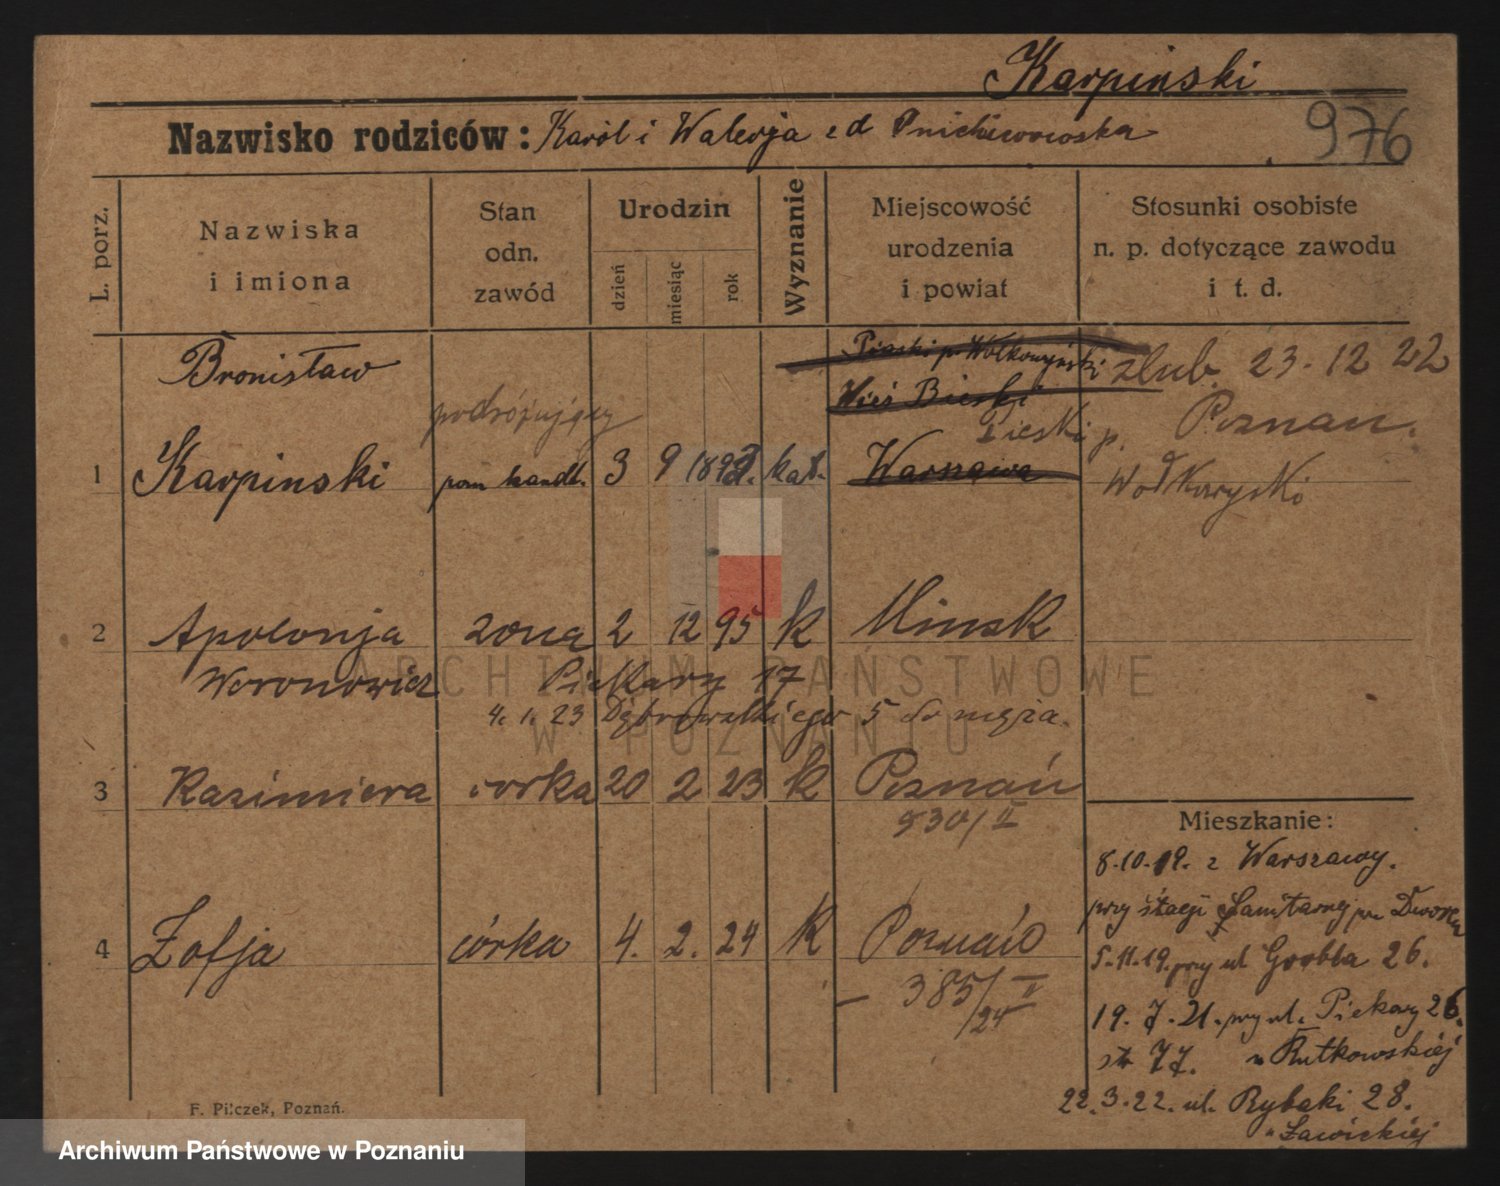 Karpinski
Nazwisko rodziców: Karól i Walerja z d
976
L. porz.
Nazwiska
i imiona
Stan
odn.
zawód
Urodzin
dzień
miesiąc
rok
Wyznanie
Miejscowość
urodzenia
i powiat
Stosunki osobiste
n. p. dotyczące zawodu
i t. d.
Bronisław
podróżujący
Piaski p. Wołkowyński
Wieś Bieski
ślub. 23.12 22
Pieski p.
Poznan.
1 Karpinski pom handl. 3 9 kat. Warszawa
Wołkowyski
2 Apolonja zona 2 12 95 k Minsk
Woronowicz Piekary 17
4. 1. 23 Dąbrowskiego 5 do męża.
3 Kazimiera córka 20 2 23 k Poznań
530/II
4 Zofja córka 4. 2. 24 k Poznań
385/24 II
Mieszkanie:
8.10.19. z Warszawy.
przy stacji Sanitarnej Dworcu
5.11.19. przy ul Grobla 26.
19. 7. 21. przy ul. Piekary 26.
u Rutkowskiej
22.3.22. ul. Rybaki 28.
u Ławickiej
F. Pilczek, Poznań.
ARCHIWUM PAŃSTWOWE
W POZNANIU
Archiwum Państwowe w Poznaniu